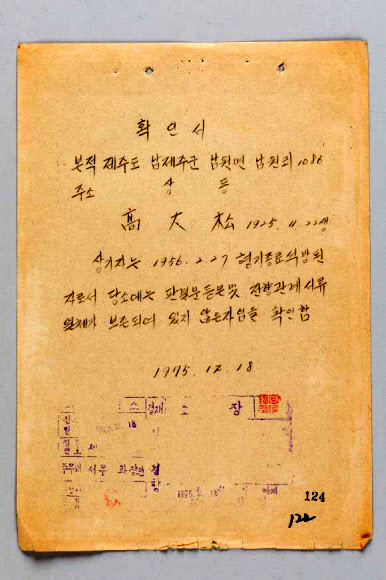 확인서
본적 제주도 남제주군 남원면 남원리 1086
주소 상 동
高大松 1925. 11. 22생
상기자는 1956. 2. 27 형기종료 석방된
자로서 당소에는 판결문등본및 전향관계서류
일체가 보존되여 있지 않은자임을 확인함
1975. 12. 18
소 장
18
서무 과장
124
122